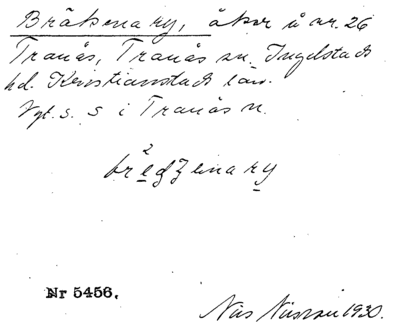 Bräkenary, åker å nr. 26
Tranås, Tranås sn. Ingelstads
hd. Kristianstads län.
Vgt. s. S i Tranås n.
2
bregʒenary
Nr 5456.
Nils Nilsson 1930.